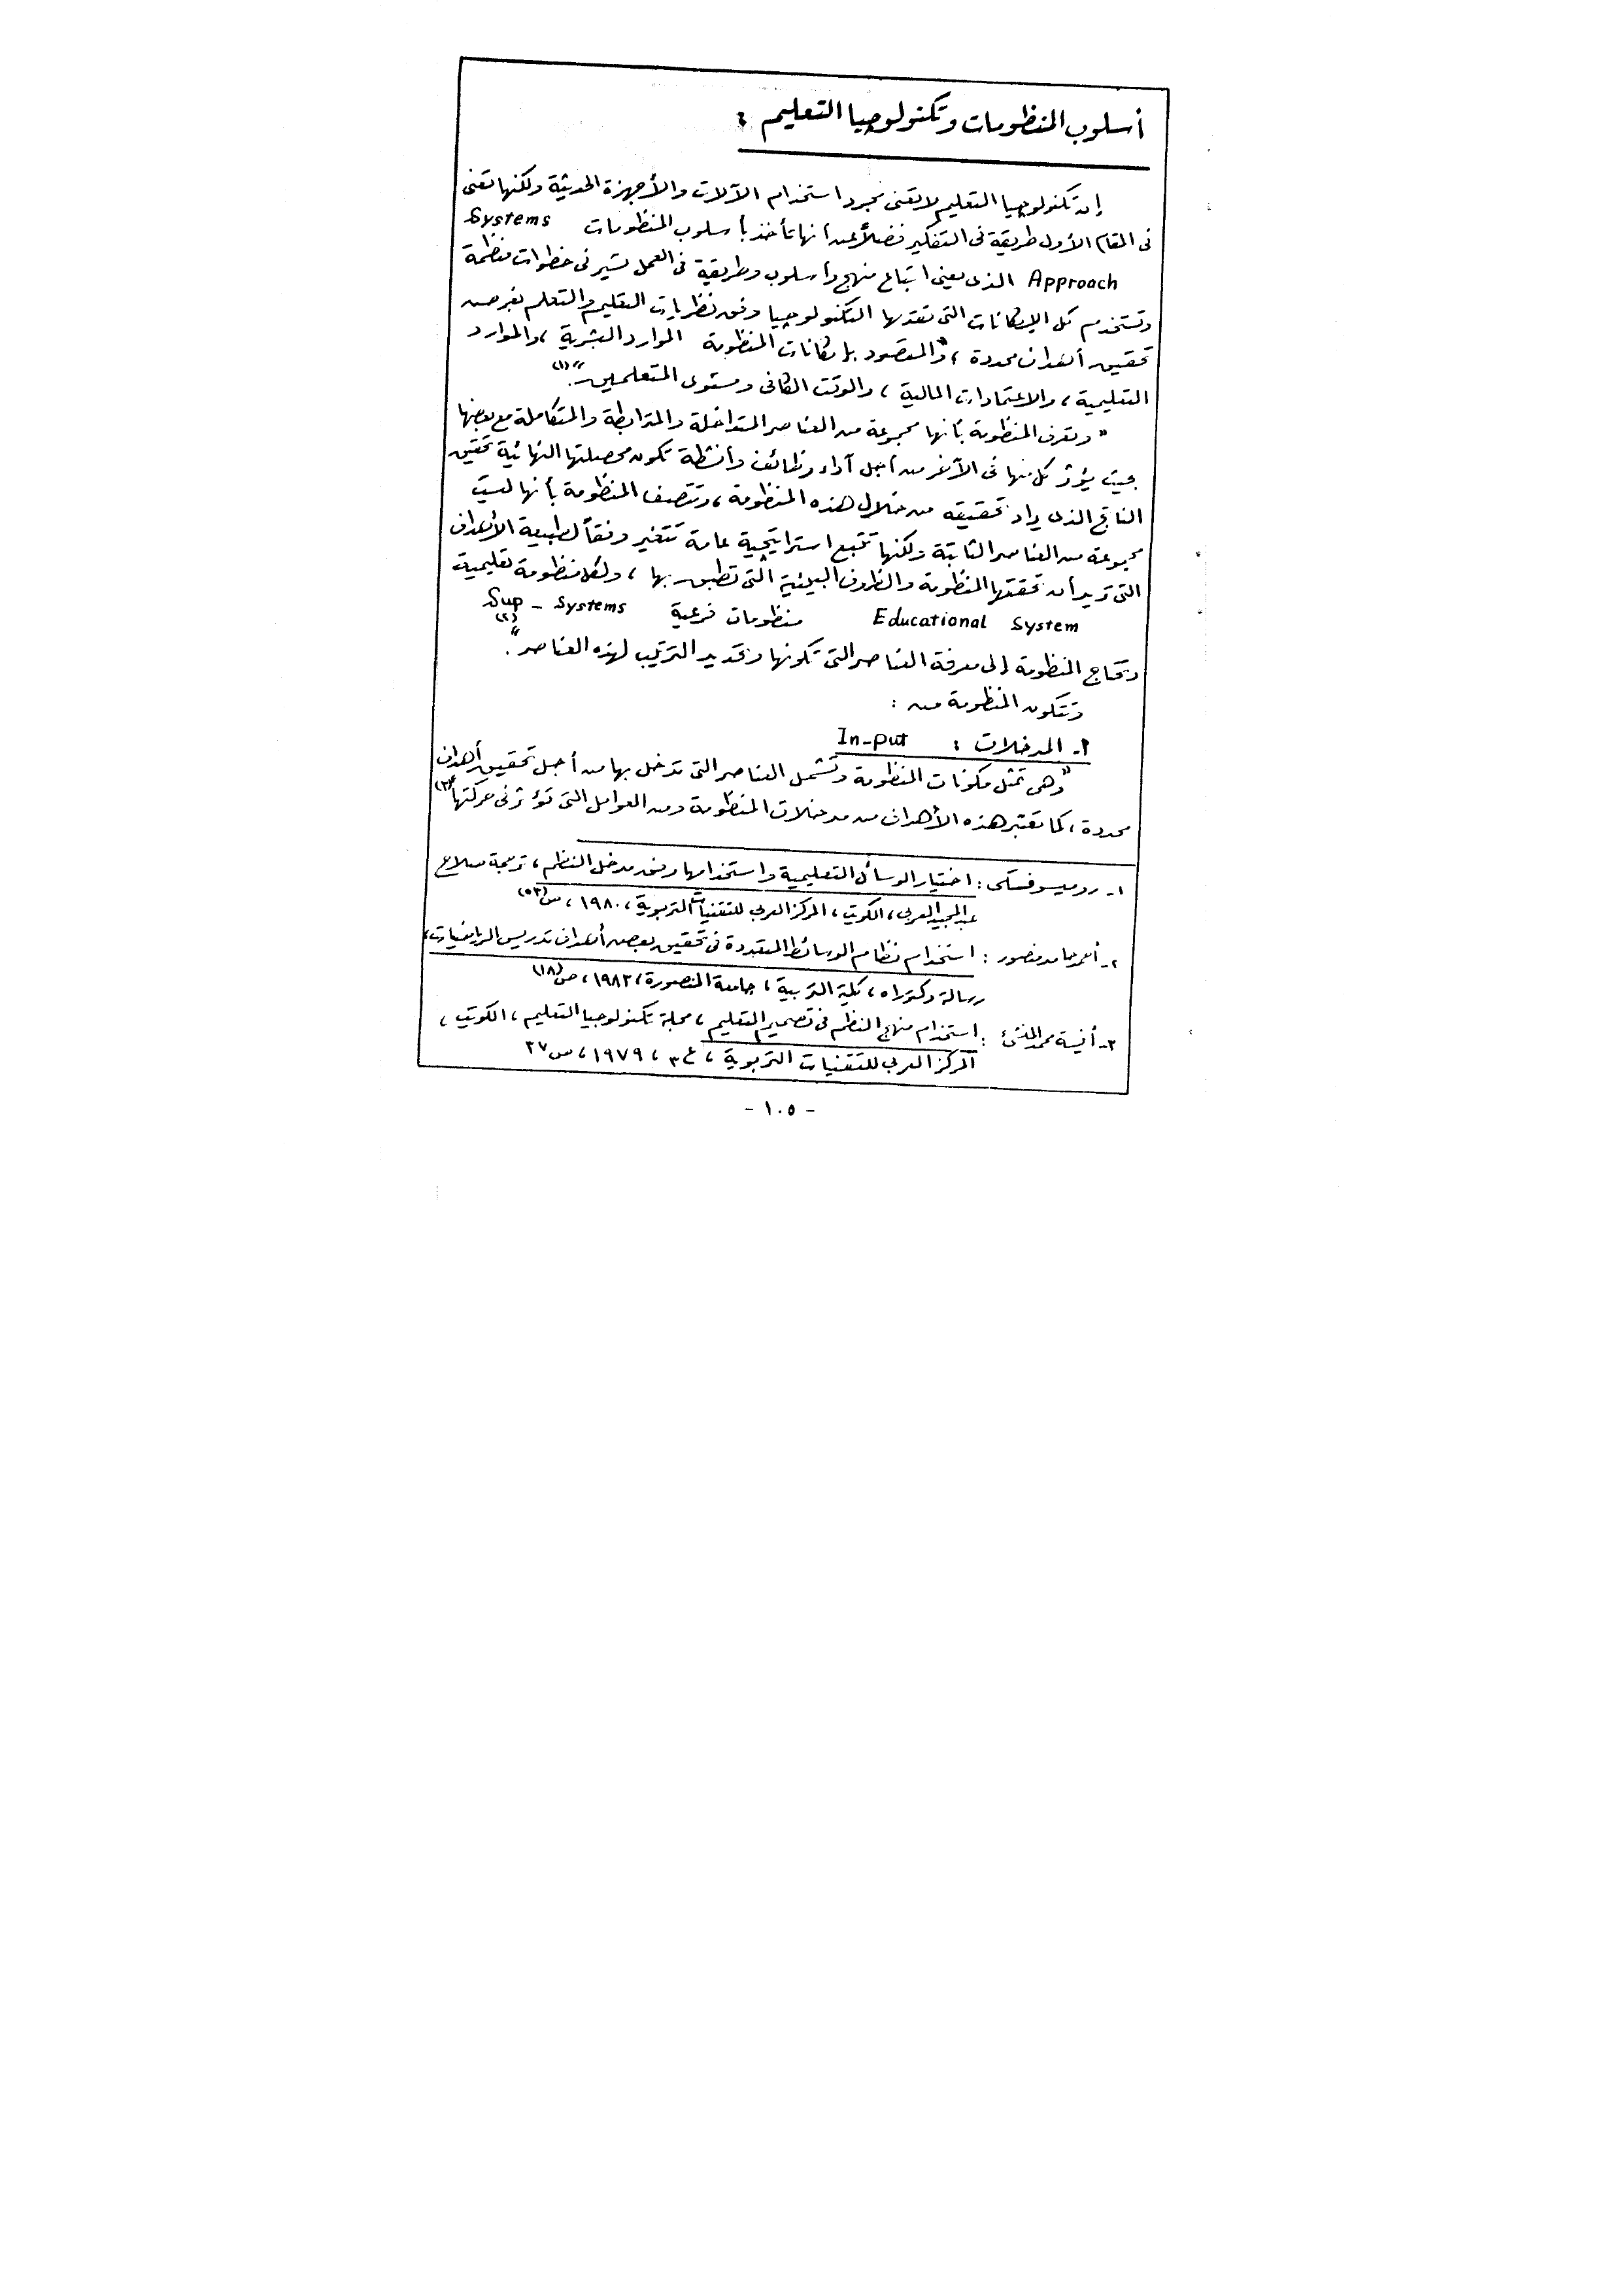 أسلوب المنظومات وتكنولوجيا التعليم :
إن تكنولوجيا التعليم لا تعنى مجرد استخدام الآلات والأجهزة الحديثة ولكنها تعنى
فى المقام الأول طريقة فى التفكير فضلاً عن أنها تأخذ بأسلوب المنظومات Systems
Approach الذى يعنى اتباع منهج وأسلوب وطريقة فى العمل تسير فى خطوات منظمة
وتستخدم كل الإمكانات التى تقدمها التكنولوجيا وفق نظريات التعليم والتعلم بغرض
تحقيق أهداف محددة ، "والمقصود بإمكانات المنظومة الموارد البشرية ، والموارد
التعليمية ، والاعتمادات المالية ، والوقت الكافى ومستوى المتعلمين" (١).
"وتعرف المنظومة بأنها مجموعة من العناصر المتداخلة والمترابطة والمتكاملة مع بعضها
بحيث يؤثر كل منها فى الآخر من أجل آداء وظائف وأنشطة تكون محصلتها النهائية تحقيق
الناتج الذى يراد تحقيقه من خلال هذه المنظومة ، وتتصف المنظومة بأنها ليست
مجموعة من العناصر الثابتة ولكنها تتبع استراتيجية عامة تتغير وفقاً لطبيعة الأهداف
التى تريد أن تحققها المنظومة والظروف البيئية التى تطبق بها ، ولكل منظومة تعليمية
Educational System منظومات فرعية Sup - Systems
وتحتاج المنظومة إلى معرفة العناصر التى تكونها وتحديد الترتيب لهذه العناصر" (٢).
وتتكون المنظومة من :
١- المدخلات : In-put
"وهى تمثل مكونات المنظومة وتشمل العناصر التى تدخل بها من أجل تحقيق أهداف
محددة ، كما تعتبر هذه الأهداف من مدخلات المنظومة ومن العوامل التى تؤثر فى حركتها" (٣)
١- روميسوفسكى : اختيار الوسائل التعليمية واستخدامها وفق مدخل النظم ، ترجمة صلاح
عبد المجيد العربى ، الكويت ، المركز العربى للتقنيات التربوية ، ١٩٨٠ ، ص (٥٣)
٢- أحمد حامد منصور : استخدام نظام الوسائط المتعددة فى تحقيق بعض أهداف تدريس الرياضيات ،
رسالة دكتوراه ، كلية التربية ، جامعة المنصورة ، ١٩٨٣ ، ص (١٨)
٣- أنيسة محمد المنشئ : استخدام منهج النظم فى تصميم التعليم ، مجلة تكنولوجيا التعليم ، الكويت ،
المركز العربى للتقنيات التربوية ، ع ٣ ، ١٩٧٩ ، ص ٢٧
- ١٠٥ -